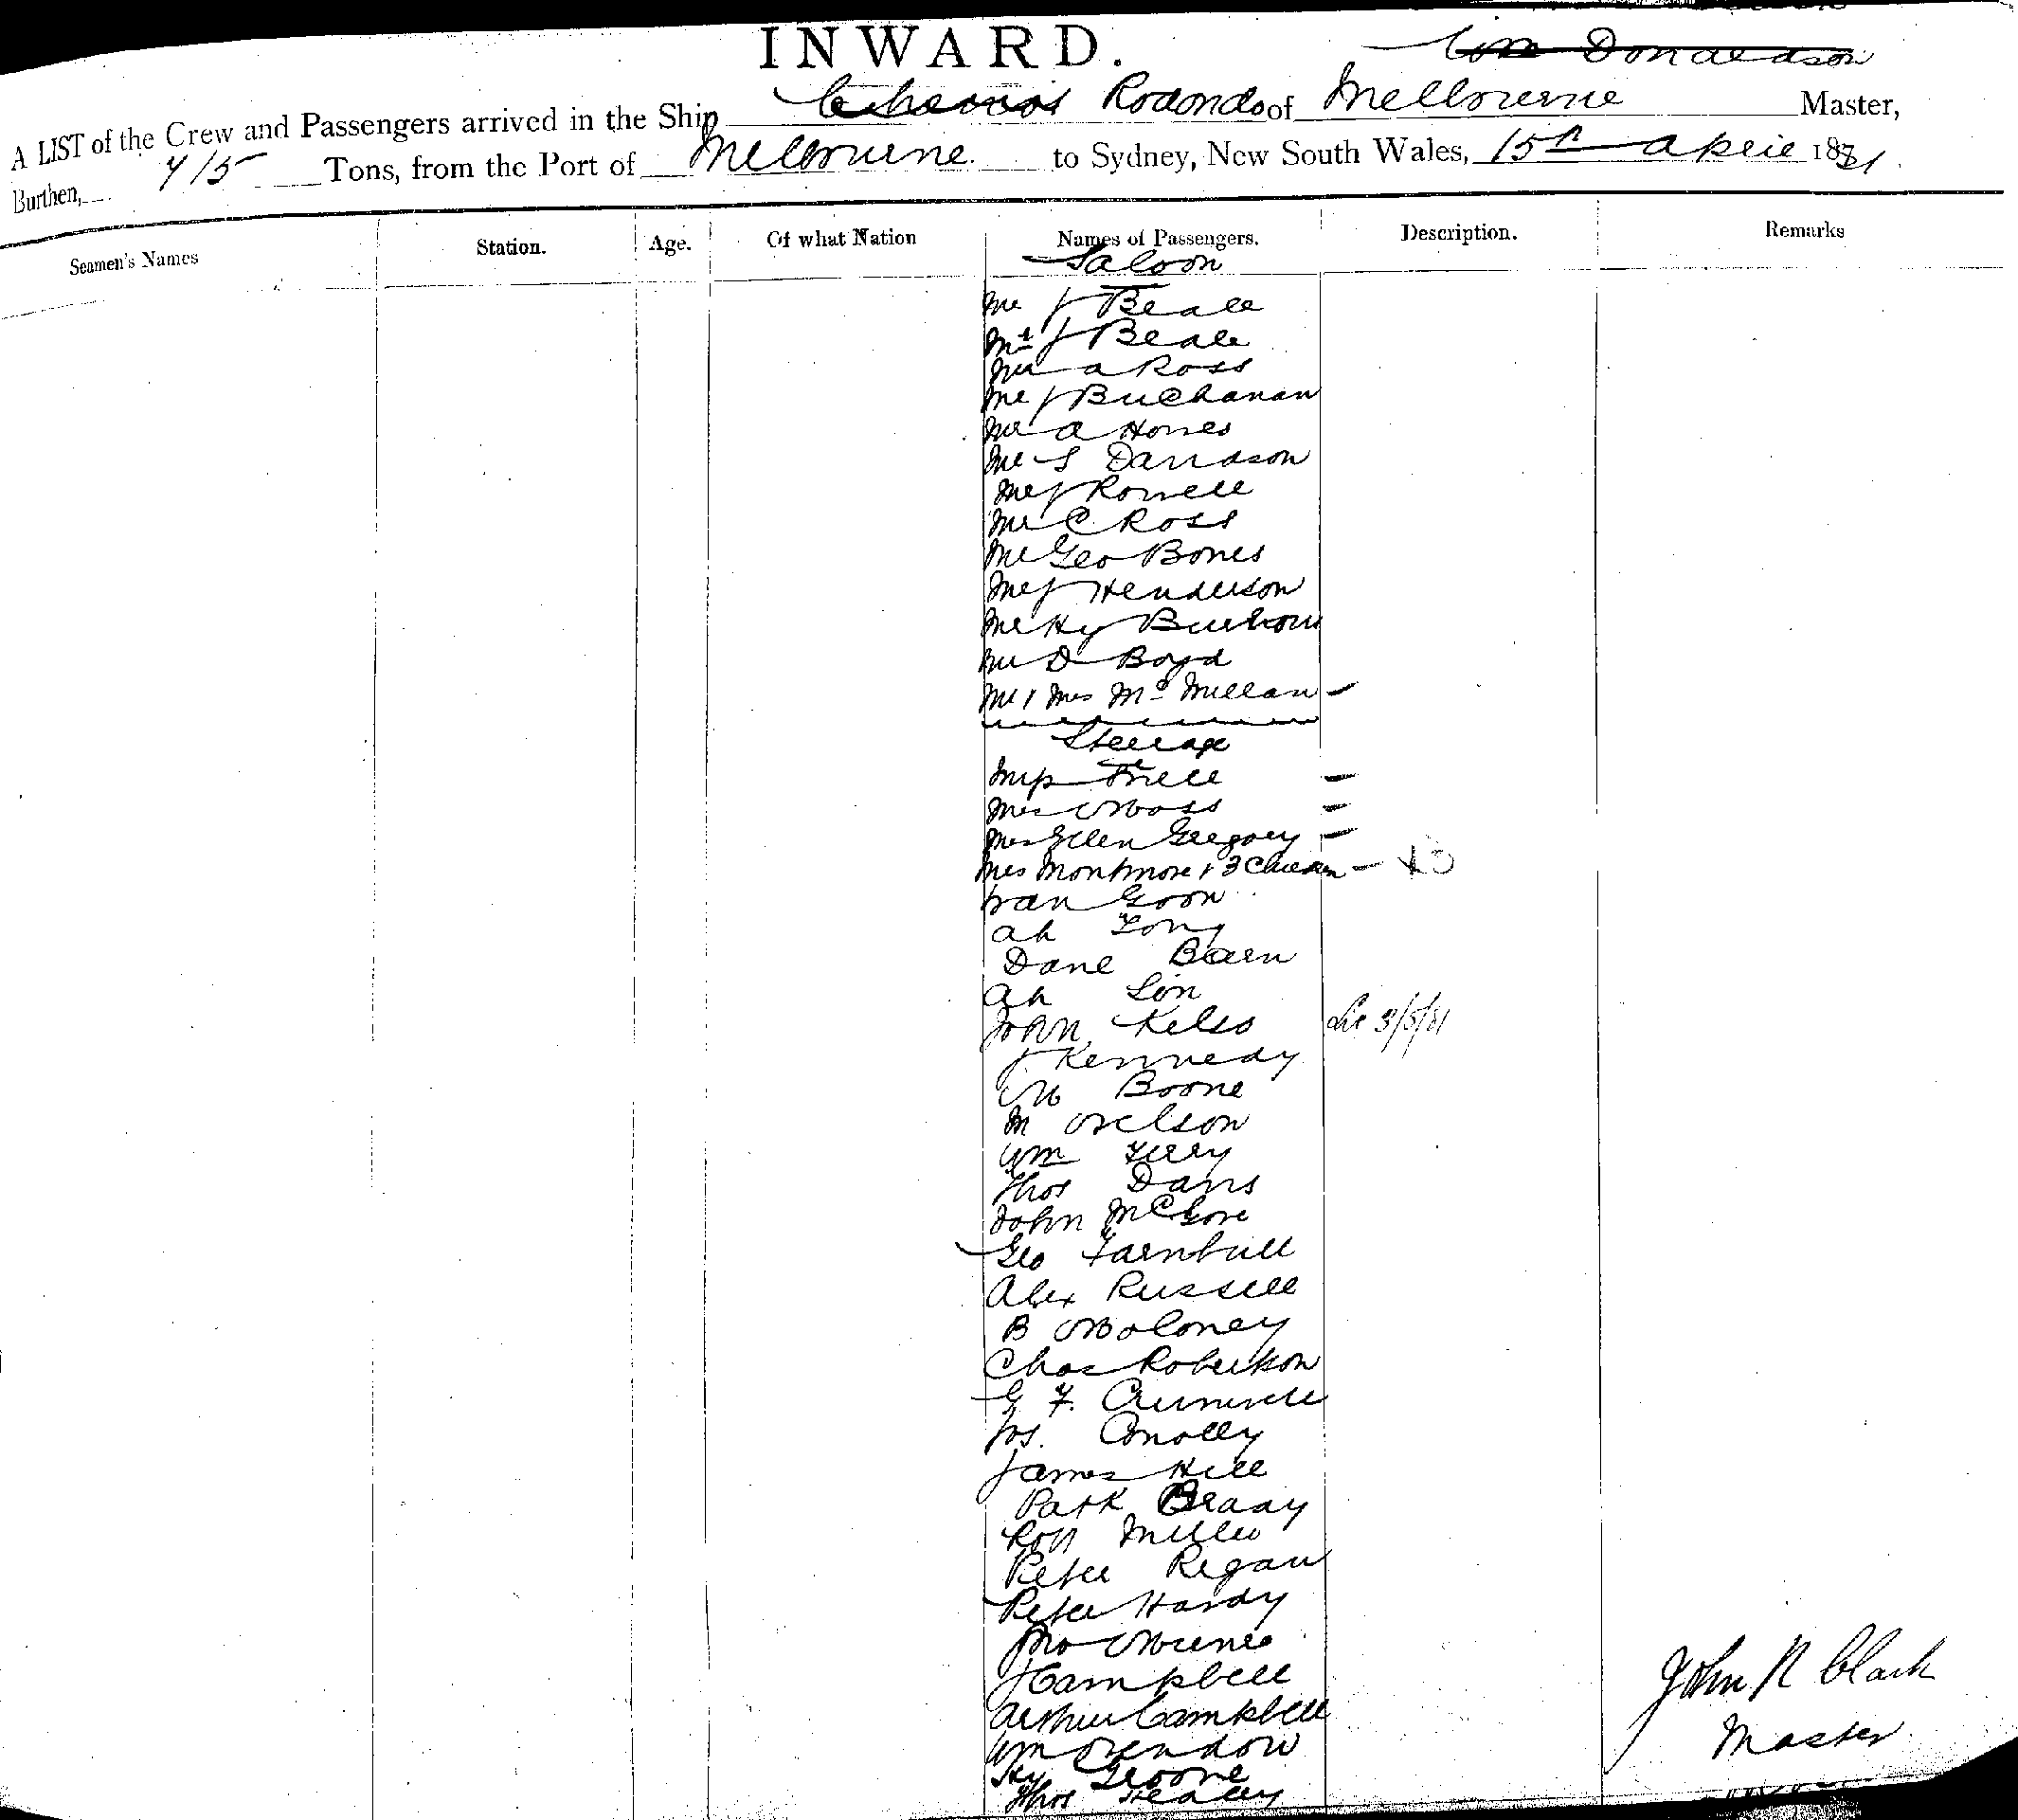 INWARD.
Wm Donaldson
A LIST of the Crew and Passengers arrived in the Ship Rodondo of Melbourne Master,
Burthen, 715 Tons, from the Port of Melbourne. to Sydney, New South Wales, 15th April 1881.
Seamen's Names Station. Age. Of what Nation Names of Passengers. Description. Remarks
Saloon
Mr J Beale
Mr J Beale
Mr A Ross
Mr J Buchanan
Mr A
Mr S Davidson
Mr J Rowell
Mr C Ross
Mr Geo Bones
Mr J Henderson
Mr Hy
Mr D Boyd
Mr & Mrs McMillan
Steerage
Miss
Mrs Moss
Mrs Ellen Gregory
Mrs Montmore & 3 Children
Goon
Ah
Dane
Ah
John Kelso
J Kennedy
M Boone
M Nelson
Wm Terry
Thos Davis
John
Geo Turnbull
Alex Russell
B Moloney
Chas Robertson
G F.
Jos. Conolly
James Hill
Patk Brady
Robt Miller
Peter Regan
Peter Hardy
Jno
J Campbell
Arthur Campbell
Wm
Hy
Thos
John R Clark
Master